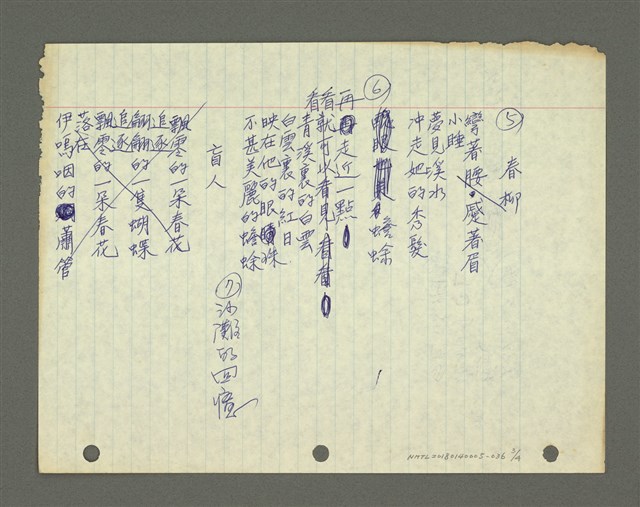 ⑤ 春柳
彎著腰,蹙著眉
小睡
夢見溪水
冲走她的秀髮
⑥ 蟾蜍
再走近一點
看看就可以看見看看
青溪裏的白雲
白雲裏的紅日
映在他的眼珠
不甚美麗的蟾蜍
盲人
飄零的一朵春花
追逐
翩翩的一隻蝴蝶
追逐
飄零的一朵春花
落在
伊嗚咽的蕭管
⑦ 沙灘的回憶
NMTL20180140005-036 3/4